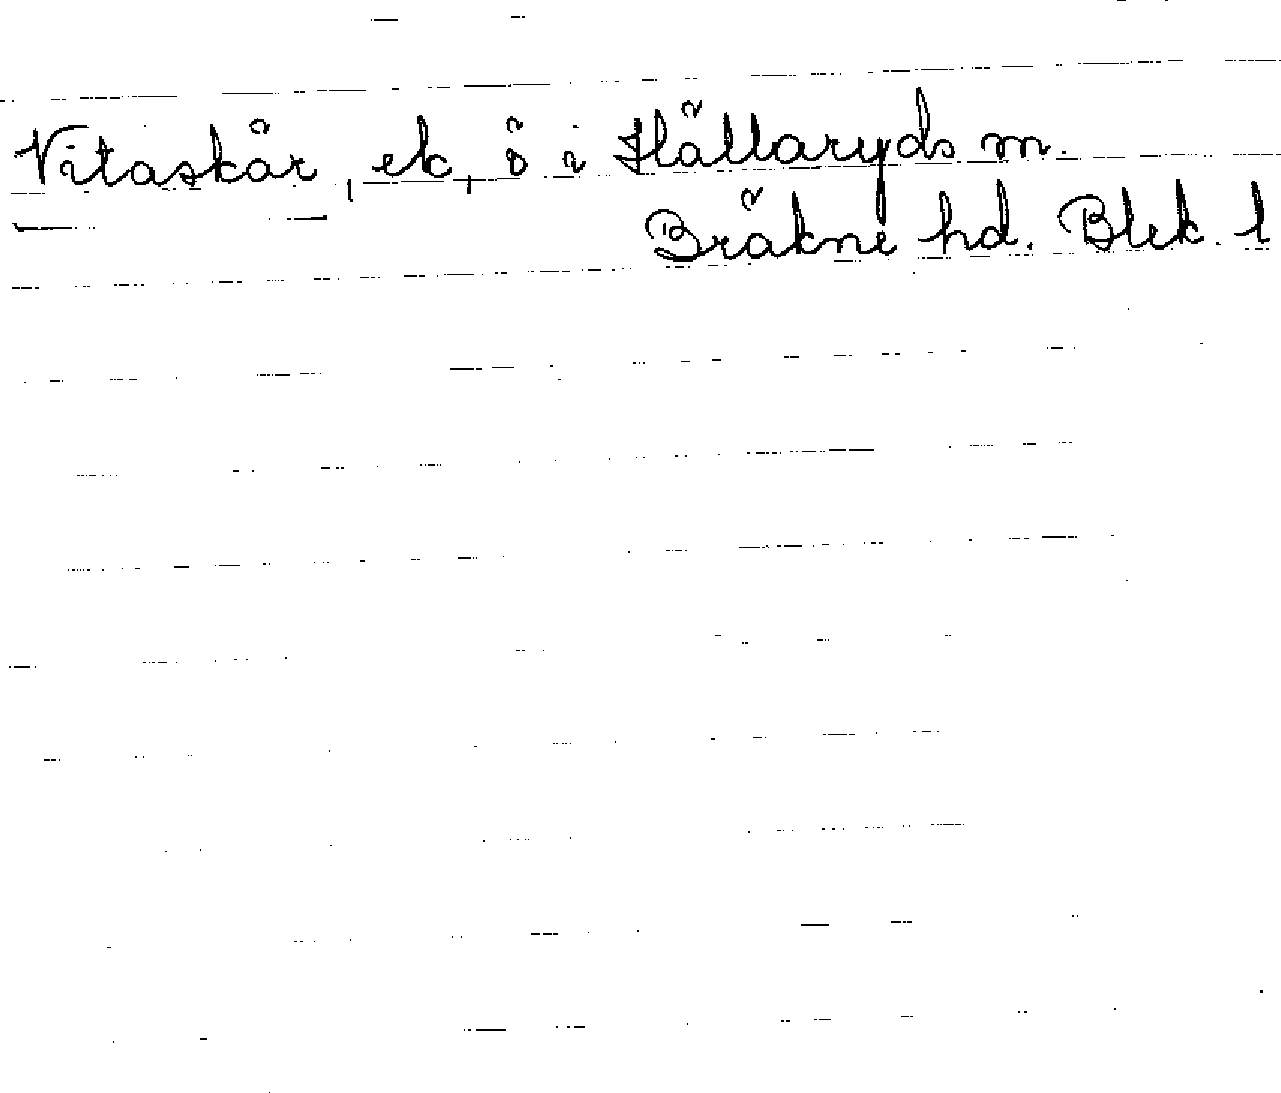 Vitaskär, ek, ö i Hällaryds sn.
Bräkne hd. Blek. l